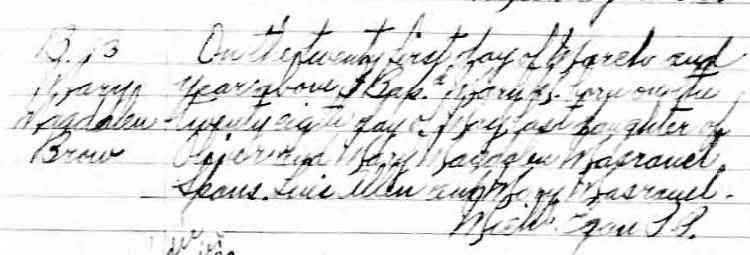 B. 13 On the twenty first day of March and
Mary year above I Bap.d Maria M. born on the
Magdalen twenty eight day of Nov last daughter of
Brow and Mary Magdalen Masrouel.
Spons. Luis Allen and Mary Masrouel.
Mich. Egan P.P.